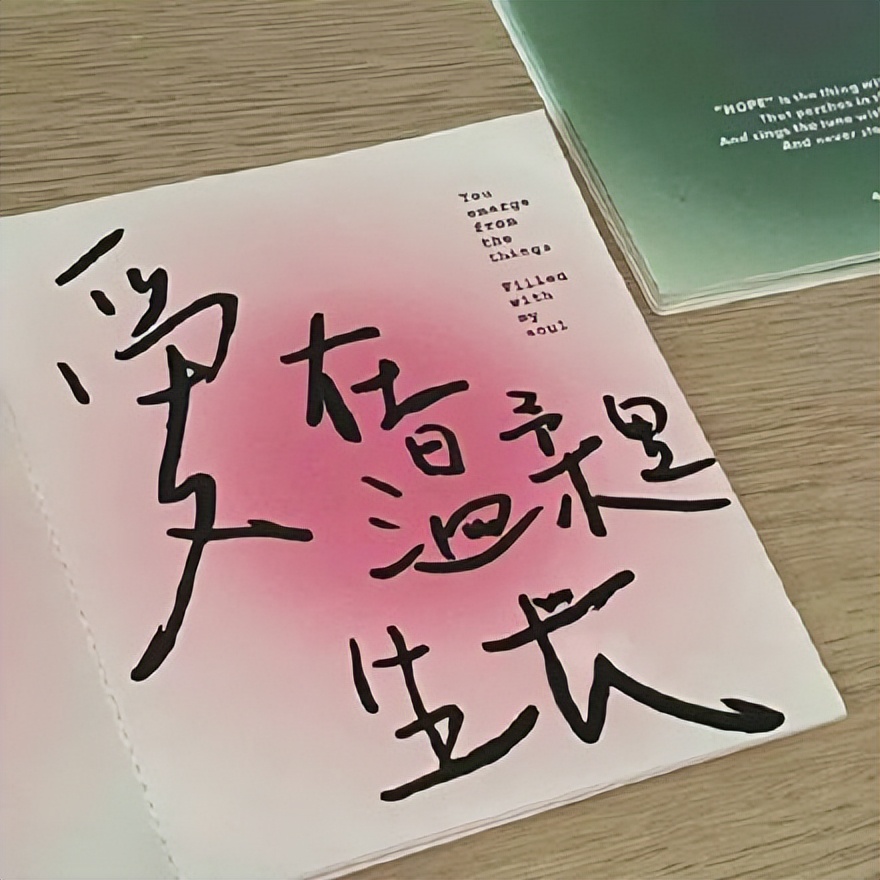 You
emerge
from
the
things
Filled
with
my
soul
爱
在
温柔里
生长
"HOPE" is the thing wi
That perches in t
And sings the tune wit
And never sto